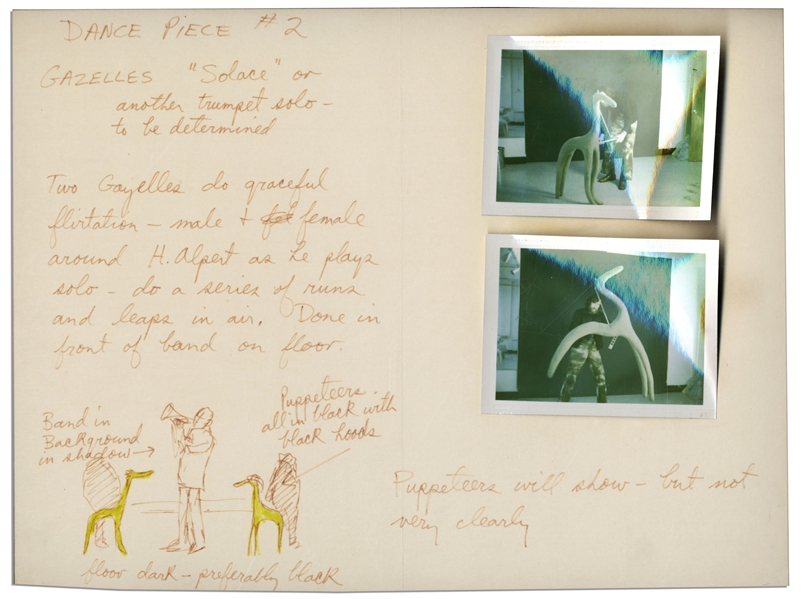 DANCE PIECE #2
GAZELLES "Solace" or
another trumpet solo –
to be determined
Two Gazelles do graceful
flirtation – male + female
around H. Alpert as he plays
solo – do a series of runs
and leaps in air. Done in
front of band on floor.
Band in
Background
in shadow →
Puppeteers
all in black with
black hoods
floor dark – preferably black
Puppeteers will show – but not
very clearly